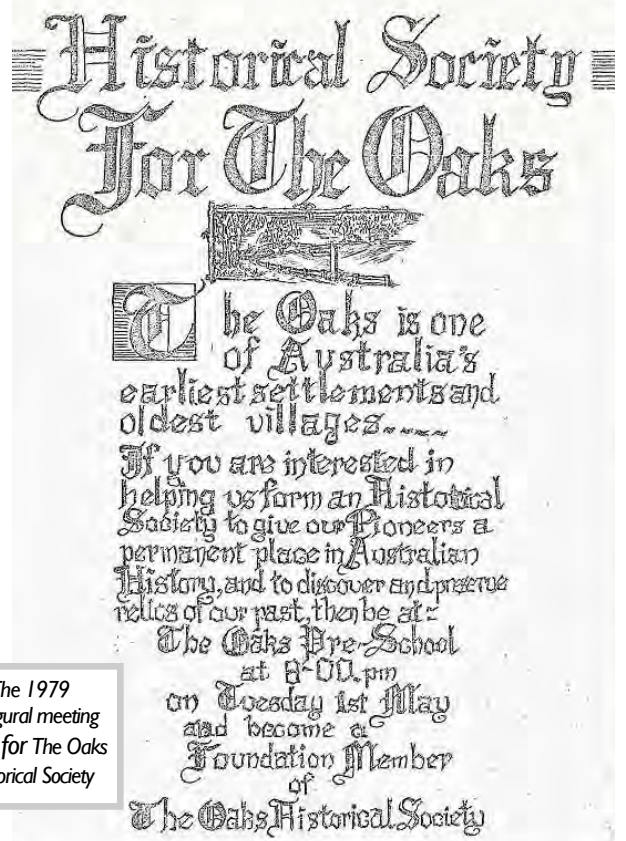 Historical Society
For The Oaks
The Oaks is one
of Australia's
earliest settlements and
oldest villages....
If you are interested in
helping us form an Historical
Society to give our Pioneers a
permanent place in Australian
History, and to discover and preserve
relics of our past, then be at:-
The Oaks Pre-School
at 8-00.pm
on Tuesday 1st May
and become a
Foundation Member
of
The Oaks Historical Society
The 1979
gural meeting
for The Oaks
orical Society